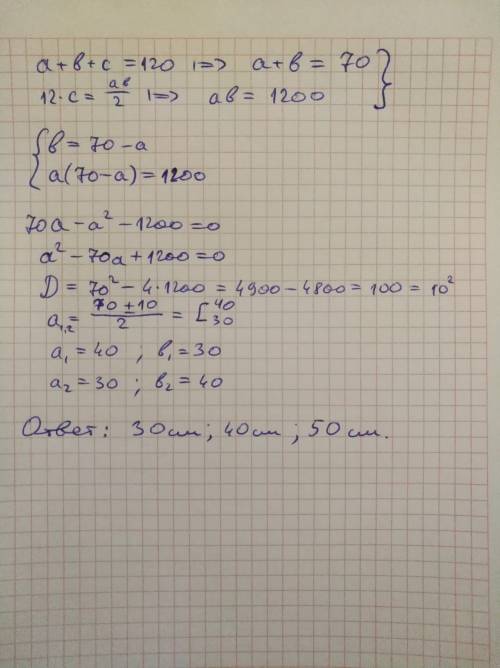 a + b + c = 120 |=> a + b = 70 }
12·c = ab/2 |=> ab = 1200
{ b = 70 - a
a(70-a) = 1200
70a - a² - 1200 = 0
a² - 70a + 1200 = 0
D = 70² - 4·1200 = 4900 - 4800 = 100 = 10²
a₁,₂ = (70 ± 10)/2 = [ 40 30
a₁ = 40 ; b₁ = 30
a₂ = 30 ; b₂ = 40
Ответ: 30см; 40см; 50см.